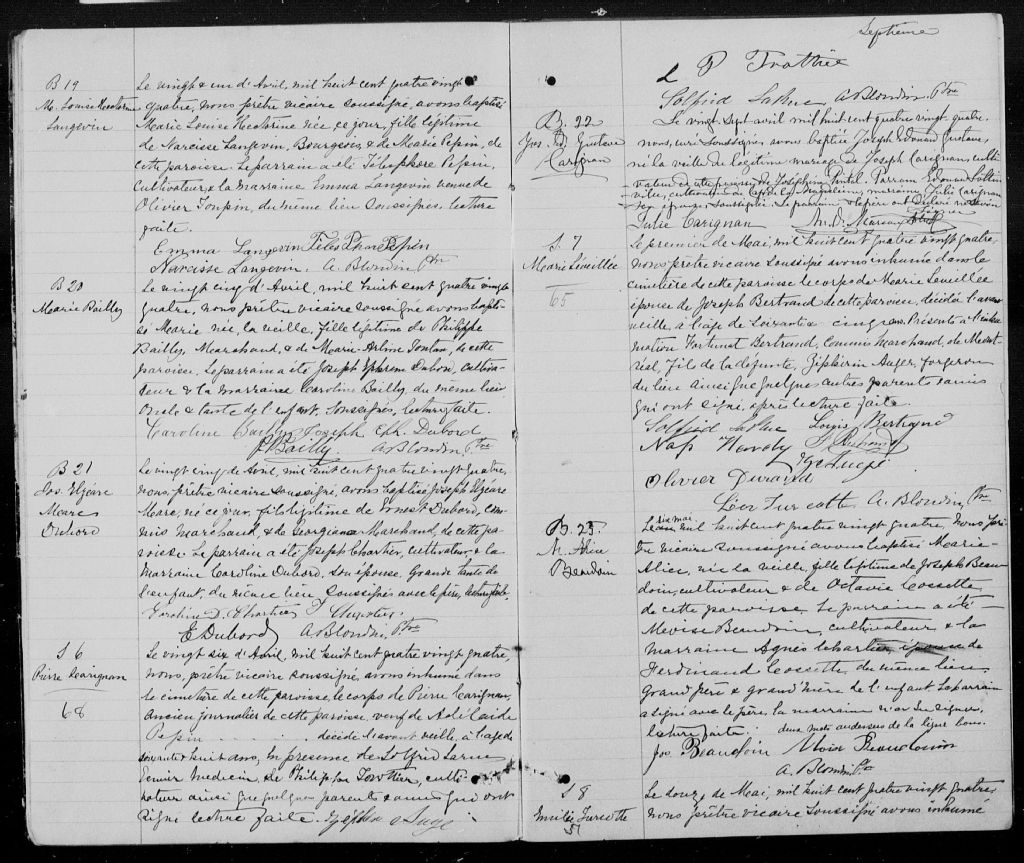 B 19
M. Louise Nectarine
Langevin
Le vingt & un d'Avril, mil huit cent quatre vingt
quatre, nous prêtre vicaire soussigné, avons baptisé
Marie Louise Nectarine née ce jour, fille légitime
de Narcisse Langevin, Bourgeois, & de Marie Pepin, de
cette paroisse. Le parrain a été Télesphore Pepin,
cultivateur, & la marraine Emma Langevin veuve de
Olivier Toupin, du même lieu soussignés. Lecture
faite.
Emma Langevin Télesphore Pepin
Narcisse Langevin, A. Blondin Ptre
B 20
Marie Bailly
Le vingt cinq d'Avril, mil huit cent quatre vingt
quatre, nous prêtre vicaire soussigné avons bapti-
sé Marie née, la veille, fille légitime de Philippe
Bailly, Marchand, & de Marie Arline, de cette
paroisse. Le parrain a été Joseph Ephrem Dubord, cultiva-
teur & la marraine Caroline Bailly du même lieu
Oncle & tante de l'enfant, soussignés, lecture faite.
Caroline Bailly Joseph Eph. Dubord
P. Bailly A. Blondin, Ptre
B 21
Jos. Elzéare
Marc
Dubord
Le vingt cinq de Avril, mil huit cent quatre vingt quatre,
nous, prêtre vicaire soussigné, avons baptisé Joseph Elzéare
Marc, né ce jour, fils légitime de Ernest Dubord, Com-
mis Marchand, & de Georgiana Marchand, de cette pa-
roisse. Le parrain a été Joseph Chartier, cultivateur, & la
marraine Caroline Dubord, son épouse, Grande tante de
l'enfant, du même lieu, soussignés avec le père, lecture faite.
Caroline D. Chartier
E Dubord A. Blondin, Ptre
S 6
Pierre Carignan
68
Le vingt six d'Avril, mil huit cent quatre vingt quatre,
nous, prêtre vicaire soussigné, avons inhumé dans
le cimetière de cette paroisse le corps de Pierre Carignan,
ancien journalier de cette paroisse, veuf de Adélaide
Pepin décédé l'avant veille, à l'age de
soixante huit ans, En présence de Solfrid Larue
Ecuier Médecin, & de Philippe Trottier, culti-
vateur ainsi que quelques parents & amis qui ont
signé lecture faite.
Septième
P Trottier
Solfrid Larue A Blondin, Ptre
B. 22
Jos. Ed. Gustave
Carignan
Le vingt Sept avril mil huit cent quatre vingt quatre
nous, curé Soussignés avons baptisé Joseph Edouard Gustave,
né la veille du légitime mariage de Joseph Carignan, culti
vateur et de Josephine Pintal. Parrain Edouard
marraine Julie Carignan
Son épouse, Soussignée. Le parrain & le père ont déclaré ne savoir
signer
Julie Carignan
S 7
Marie Leveillee
65
Le premier de Mai, mil huit cent quatre vingt quatre,
nous prêtre vicaire Soussigné avons inhumé dans le
cimetière de cette paroisse le corps de Marie Leveillee
épouse de Joseph Bertrand de cette paroisse, décédée l'avant
veille, à l'age de soixante & cinq ans. Présents à l'inhu
mation Fortunat Bertrand, Commis Marchand, de Mont
réal, fils de la défunte, Zéphirin Auger, forgeron
du lieu ainsi que quelques autres parents & amis
qui ont signé, après lecture faite.
Solfrid Larue Louis Bertrand
Nap
Olivier Durand
Léon Turcotte A. Blondin, Ptre
B. 23.
M. Alice
Beaudoin
Le six mai, mil huit cent quatre vingt quatre, nous prê
tre vicaire soussigné avons baptisé Marie-
Alice, née la veille, fille légitime de Joseph Beau
doin, cultivateur & de Octavie Cossette
de cette paroisse. Le parrain a été
Moise Beaudoin, cultivateur & la
marraine Agnès Lechartier, épouse de
Ferdinand Cossette du même lieu
Grand père & grand'mère de l'enfant Le parrain
a signé avec le père, la marraine n'a su signer,
lecture faite. deux mots audessus de la ligne bons.
Jos Beaudoin Moise Beaudouin
A. Blondin Ptre
S 8
Turcotte
51
Le douze de Mai, mil huit cent quatre vingt quatre,
nous prêtre vicaire soussigné avons inhumé